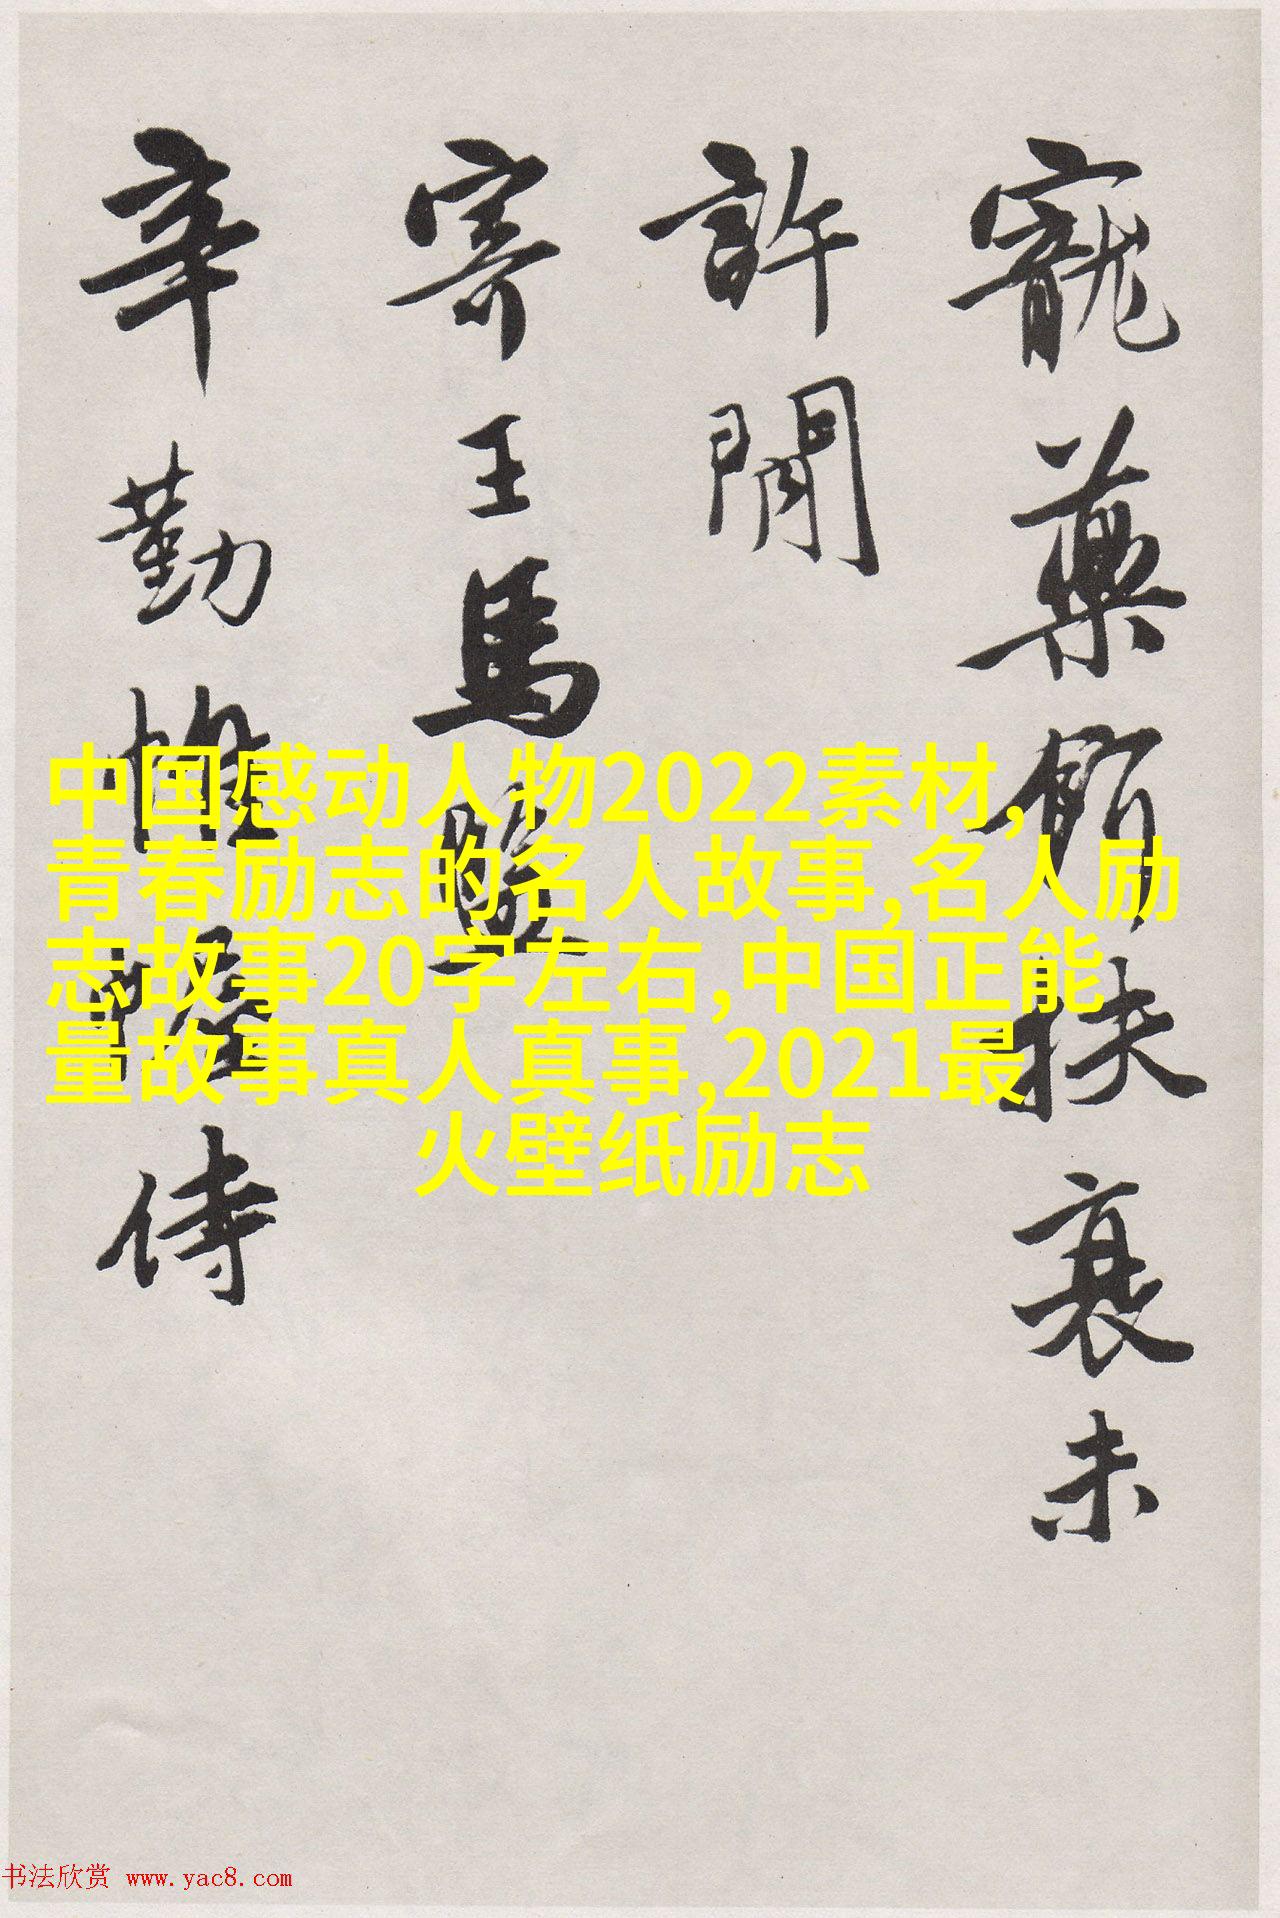 寵藥餌扶衰未
許閒
寄王馬監
辛勤帷幄侍
中国感动人物2022素材,
青春励志的名人故事,名人励
志故事20字左右,中国正能
量故事真人真事,2021最
火壁纸励志
书法欣赏 www.yac8.com